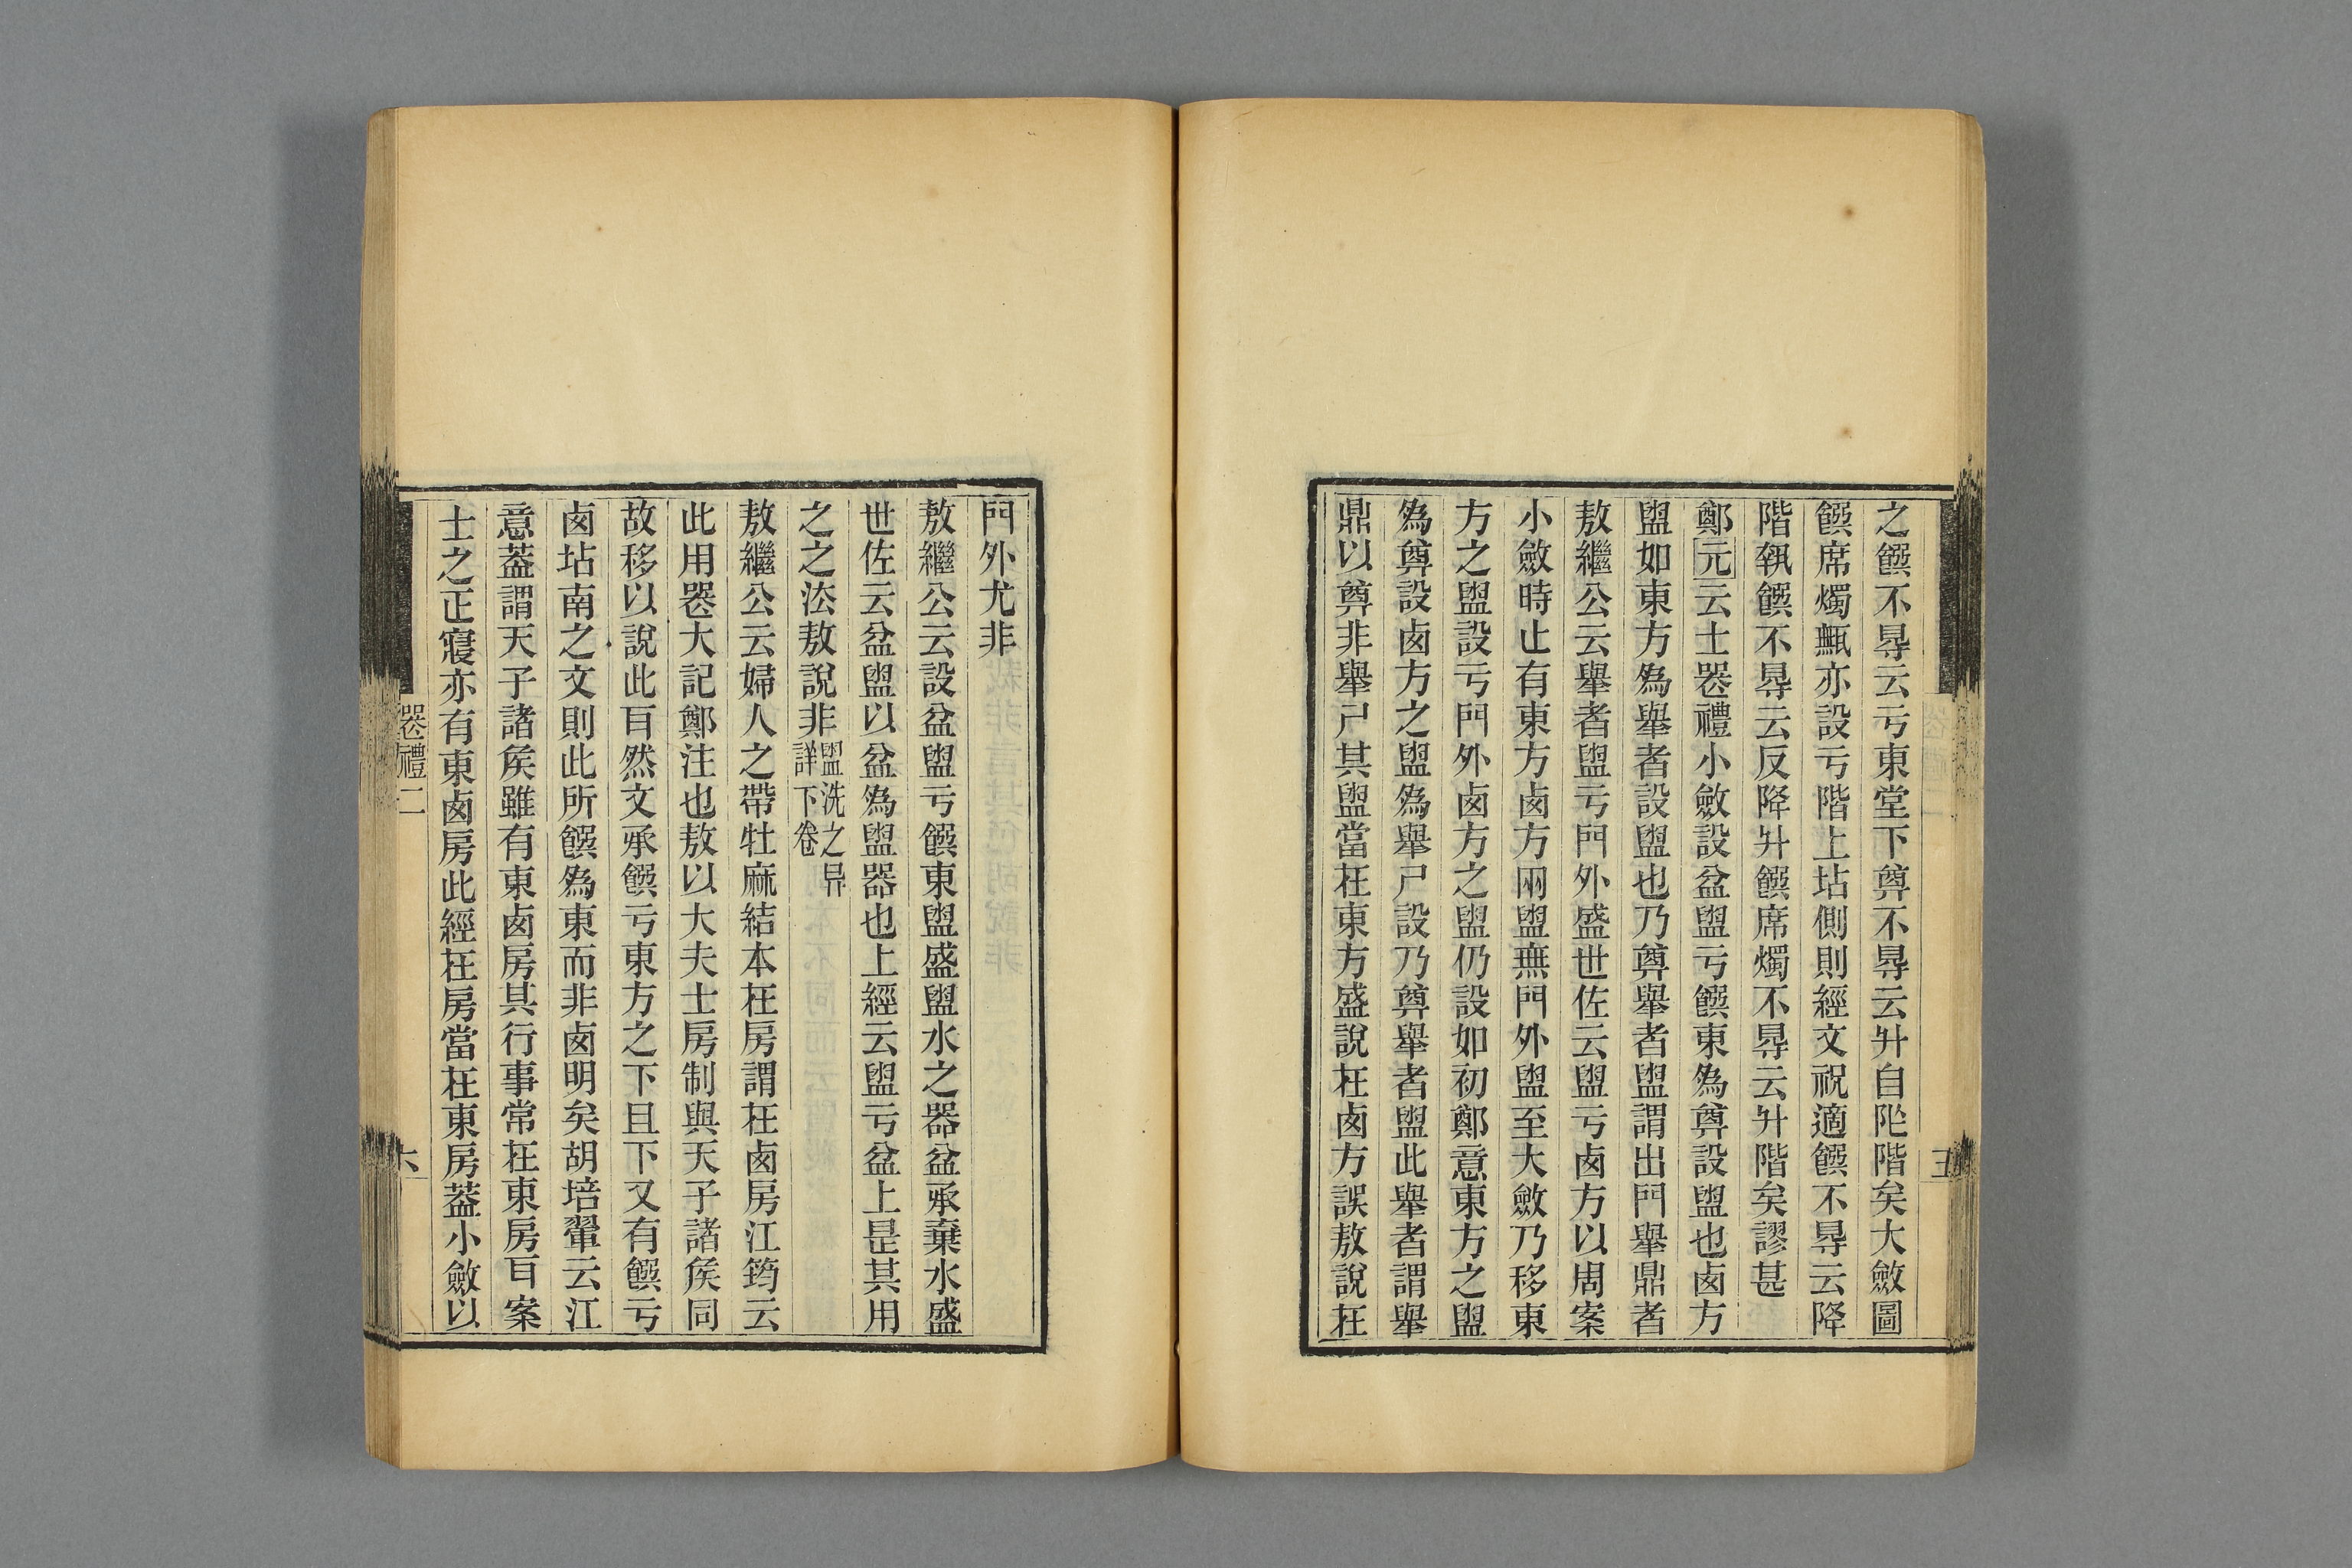 之饌不㝵云亏東堂下尊不㝵云升自阼階矣大斂圖
饌席燭甒亦設亏階上坫側則經文祝適饌不㝵云降
階執饌不㝵云反降升饌席燭不㝵云升階矣謬甚
鄭元云士喪禮小斂設盆盥亏饌東為尊設盥也卤方
盥如東方為舉者設盥也乃尊舉者盥謂出門舉鼎者
敖繼公云舉者盥亏門外盛世佐云盥亏卤方以周案
小斂時止有東方卤方兩盥無門外盥至大斂乃移東
方之盥設亏門外卤方之盥仍設如初鄭意東方之盥
為尊設卤方之盥為舉尸設乃尊舉者盥此舉者謂舉
鼎以尊非舉尸其盥當在東方盛說在卤方誤敖說在
五
門外尤非
敖繼公云設盆盥亏饌東盥盛盥水之器盆承棄水盛
世佐云盆盥以盆為盥器也上經云盥亏盆上是其用
之之法敖說非盥洗之异詳下卷
敖繼公云婦人之帶牡麻結本在房謂在卤房江筠云
此用喪大記鄭注也敖以大夫士房制與天子諸矦同
故移以說此㠯然文承饌亏東方之下且下又有饌亏
卤坫南之文則此所饌為東而非卤明矣胡培翬云江
意葢謂天子諸矦雖有東卤房其行事常在東房㠯案
士之正寢亦有東卤房此經在房當在東房葢小斂以
喪禮二
六